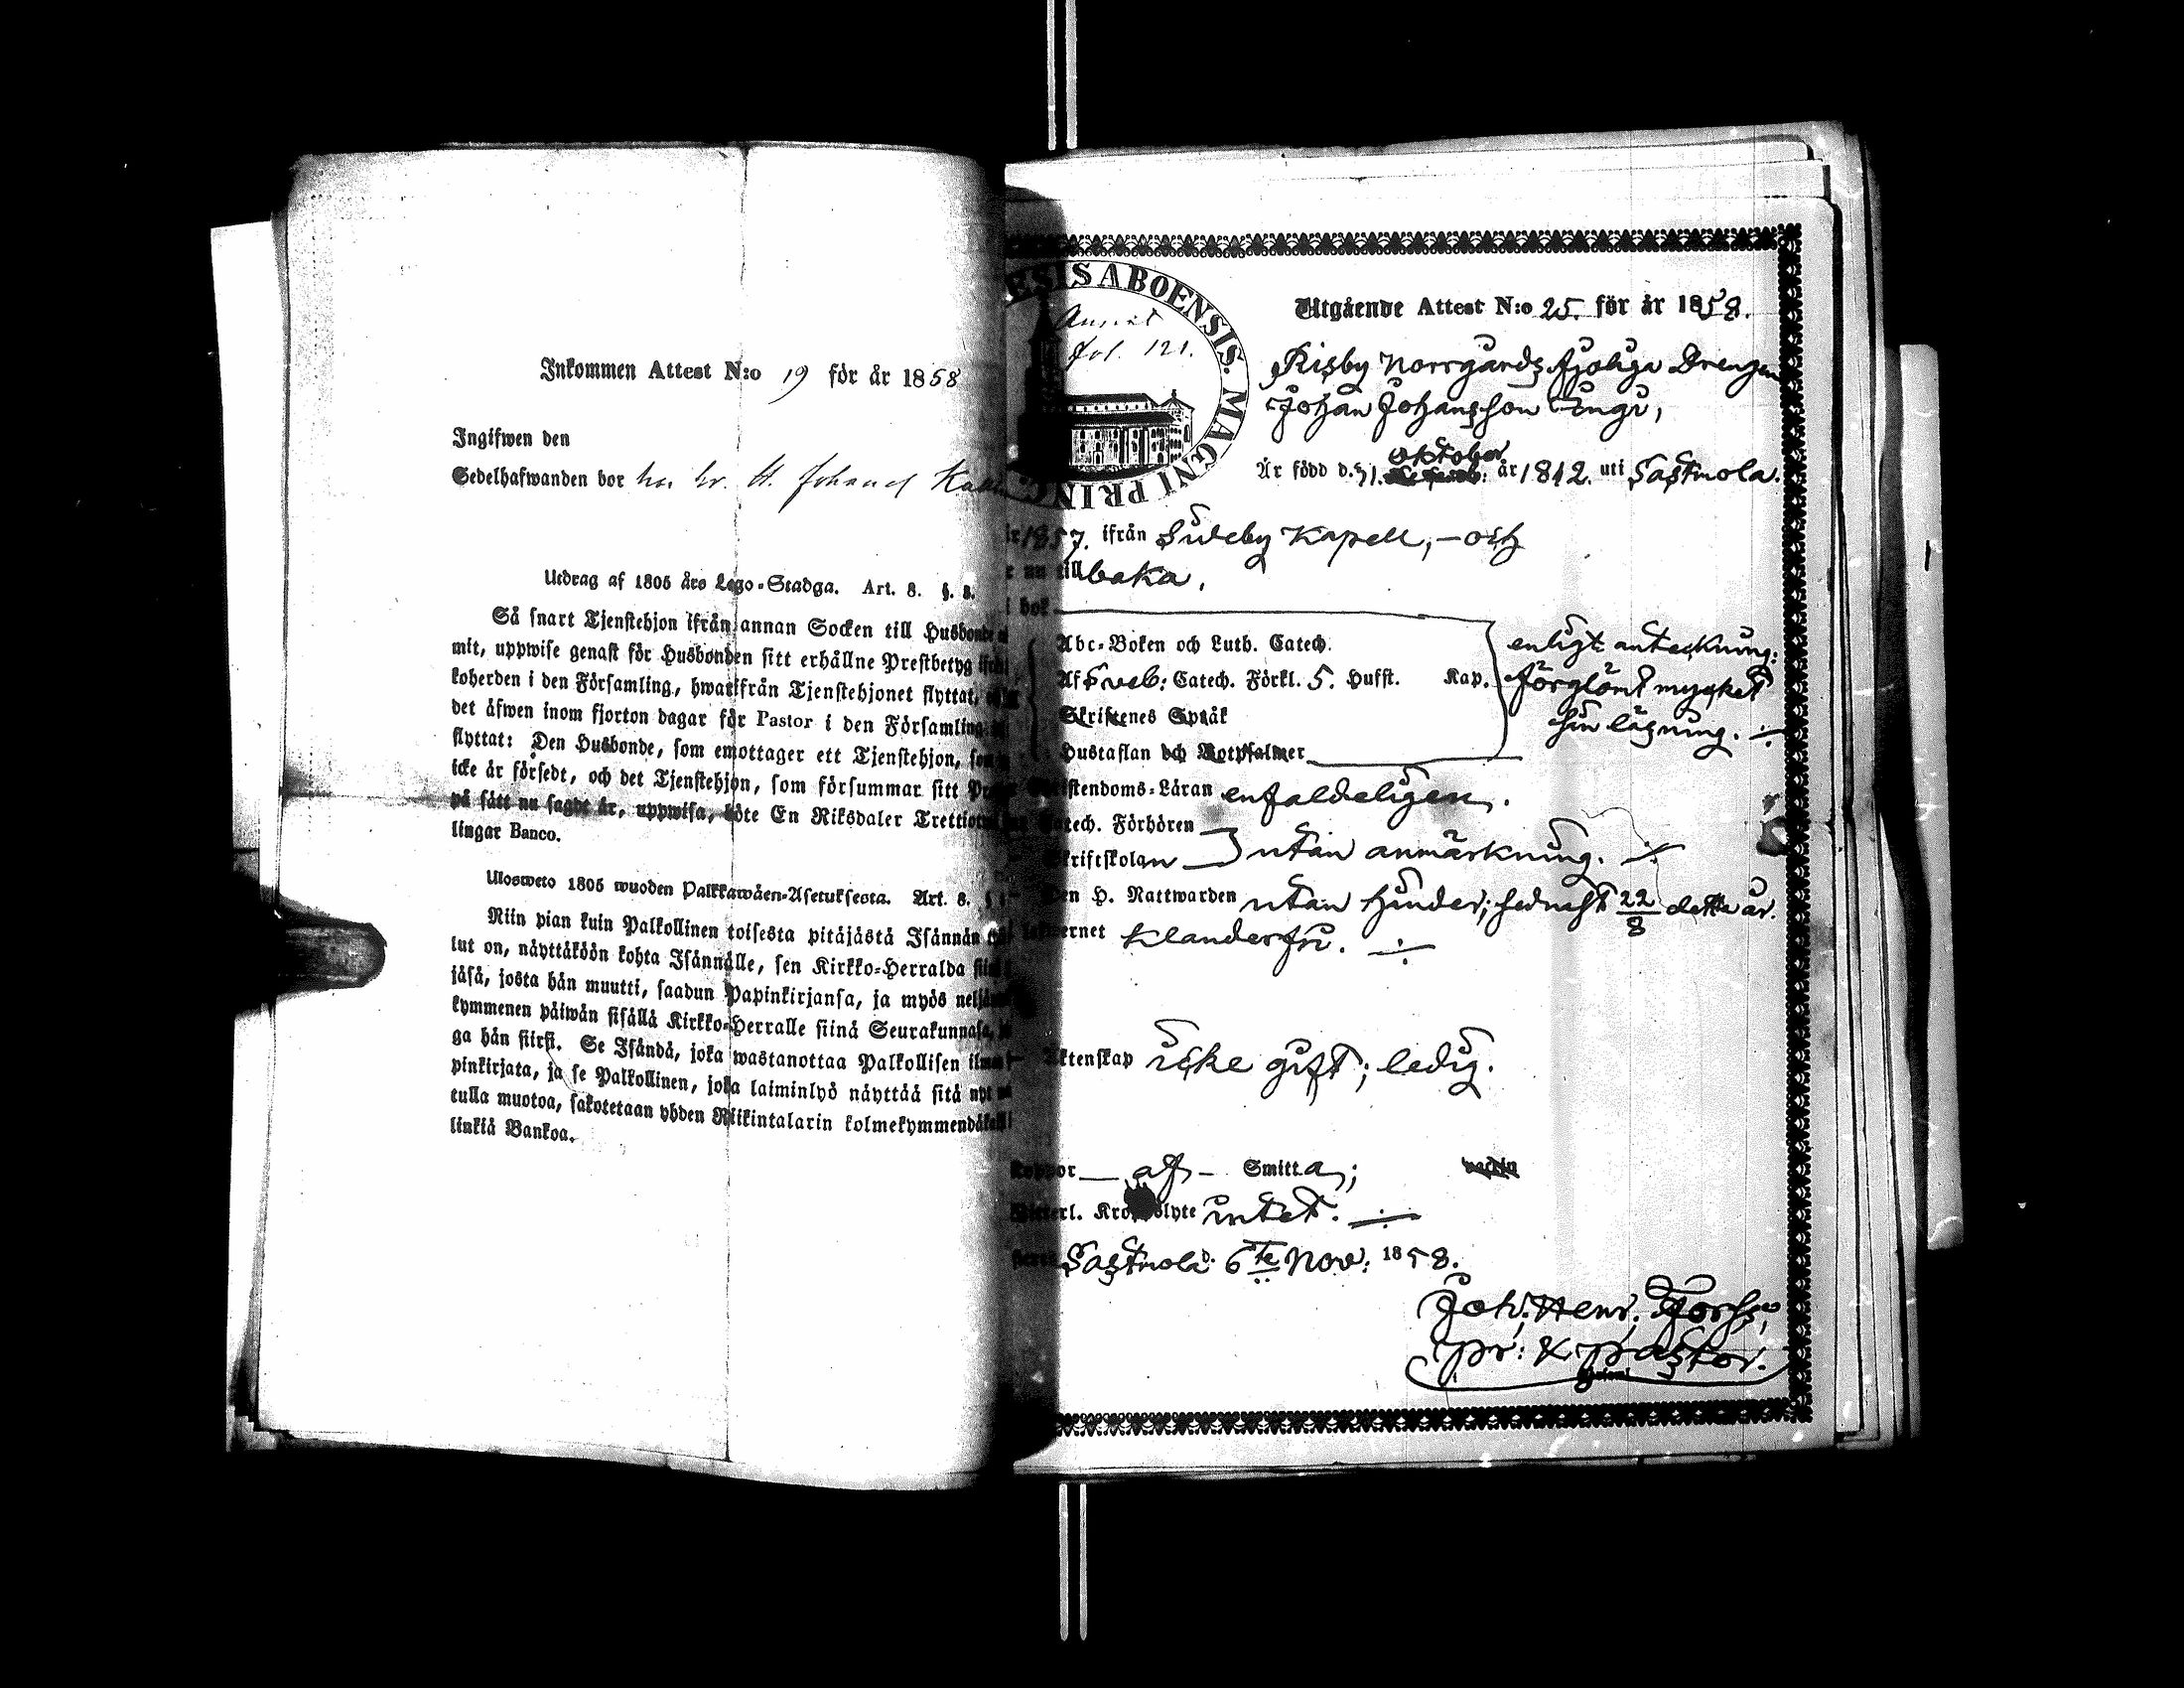 Inkommen Attest N:o 19 för år 1858
Ingifwen den
Sedelhafwanden bor hos
Utdrag af 1805 års Lego-Stadga. Art. 8. §. 8.
Så snart Tjenstehjon ifrån annan Socken till Husbonde
mit, uppwise genast för Husbonden sitt erhållne Prestbetyg
koherden i den Församling, hwarifrån Tjenstehjonet flyttat,
det äfwen inom fjorton dagar för Pastor i den Församling
flyttat: Den Husbonde, som emottager ett Tjenstehjon,
icke är försedt, och det Tjenstehjon, som försummar sitt
på sätt nu sagdt är, uppwisa, böte En Riksdaler
lingar Banco.
Ulosweto 1805 wuoden Palkkawäen-Asetuksesta. Art. 8.
Niin pian kuin Palkollinen toisesta pitäjästä Isännän
lut on, näyttäköön kohta Isännälle, sen Kirkko-Herralda
jäsä, josta hän muutti, saadun Papinkirjansa, ja myös
kymmenen päiwän sisällä Kirkko-Herralle siinä Seurakunnasa,
ga hän siirsi. Se Isändä, joka wastanottaa Palkollisen
pinkirjata, ja se Palkollinen, joka laiminlyö näyttää sitä nyt
tulla muotoa, sakotetaan yhden Riikintalarin
linkiä Bankoa.
ESIS ABOENSIS. MAGNI PRINC
fol. 121.
Utgående Attest N:o 25. för år 1858.
Risby Norrgårds Drengen
Johan Johansson
oktober
Är född d. 31. år 1842. uti Sastmola.
1857. ifrån Sideby Kapell, - och
nu tillbaka.
bok
Abc-Boken och Luth. Catech.
Af Sveb: Catech. Förkl. 5. Hufst. Kap.
Skriftenes Språk
Hustaflan och Botpsalmer
enligt anteckning:
förglömt mycket
sin läsning. ÷
Christendoms-Läran enfaldeligen.
Catech. Förhören
Skriftskolan utan anmärkning. ÷
Den H. Nattwarden utan hinder; sednast 22/8 detta år.
klanderfri. ÷
Äktenskap icke gift; ledig.
Koppor af Smitta;
Witterl. intet. ÷
Sastmola d. 6te Nov: 1858.
Joh: Henr: